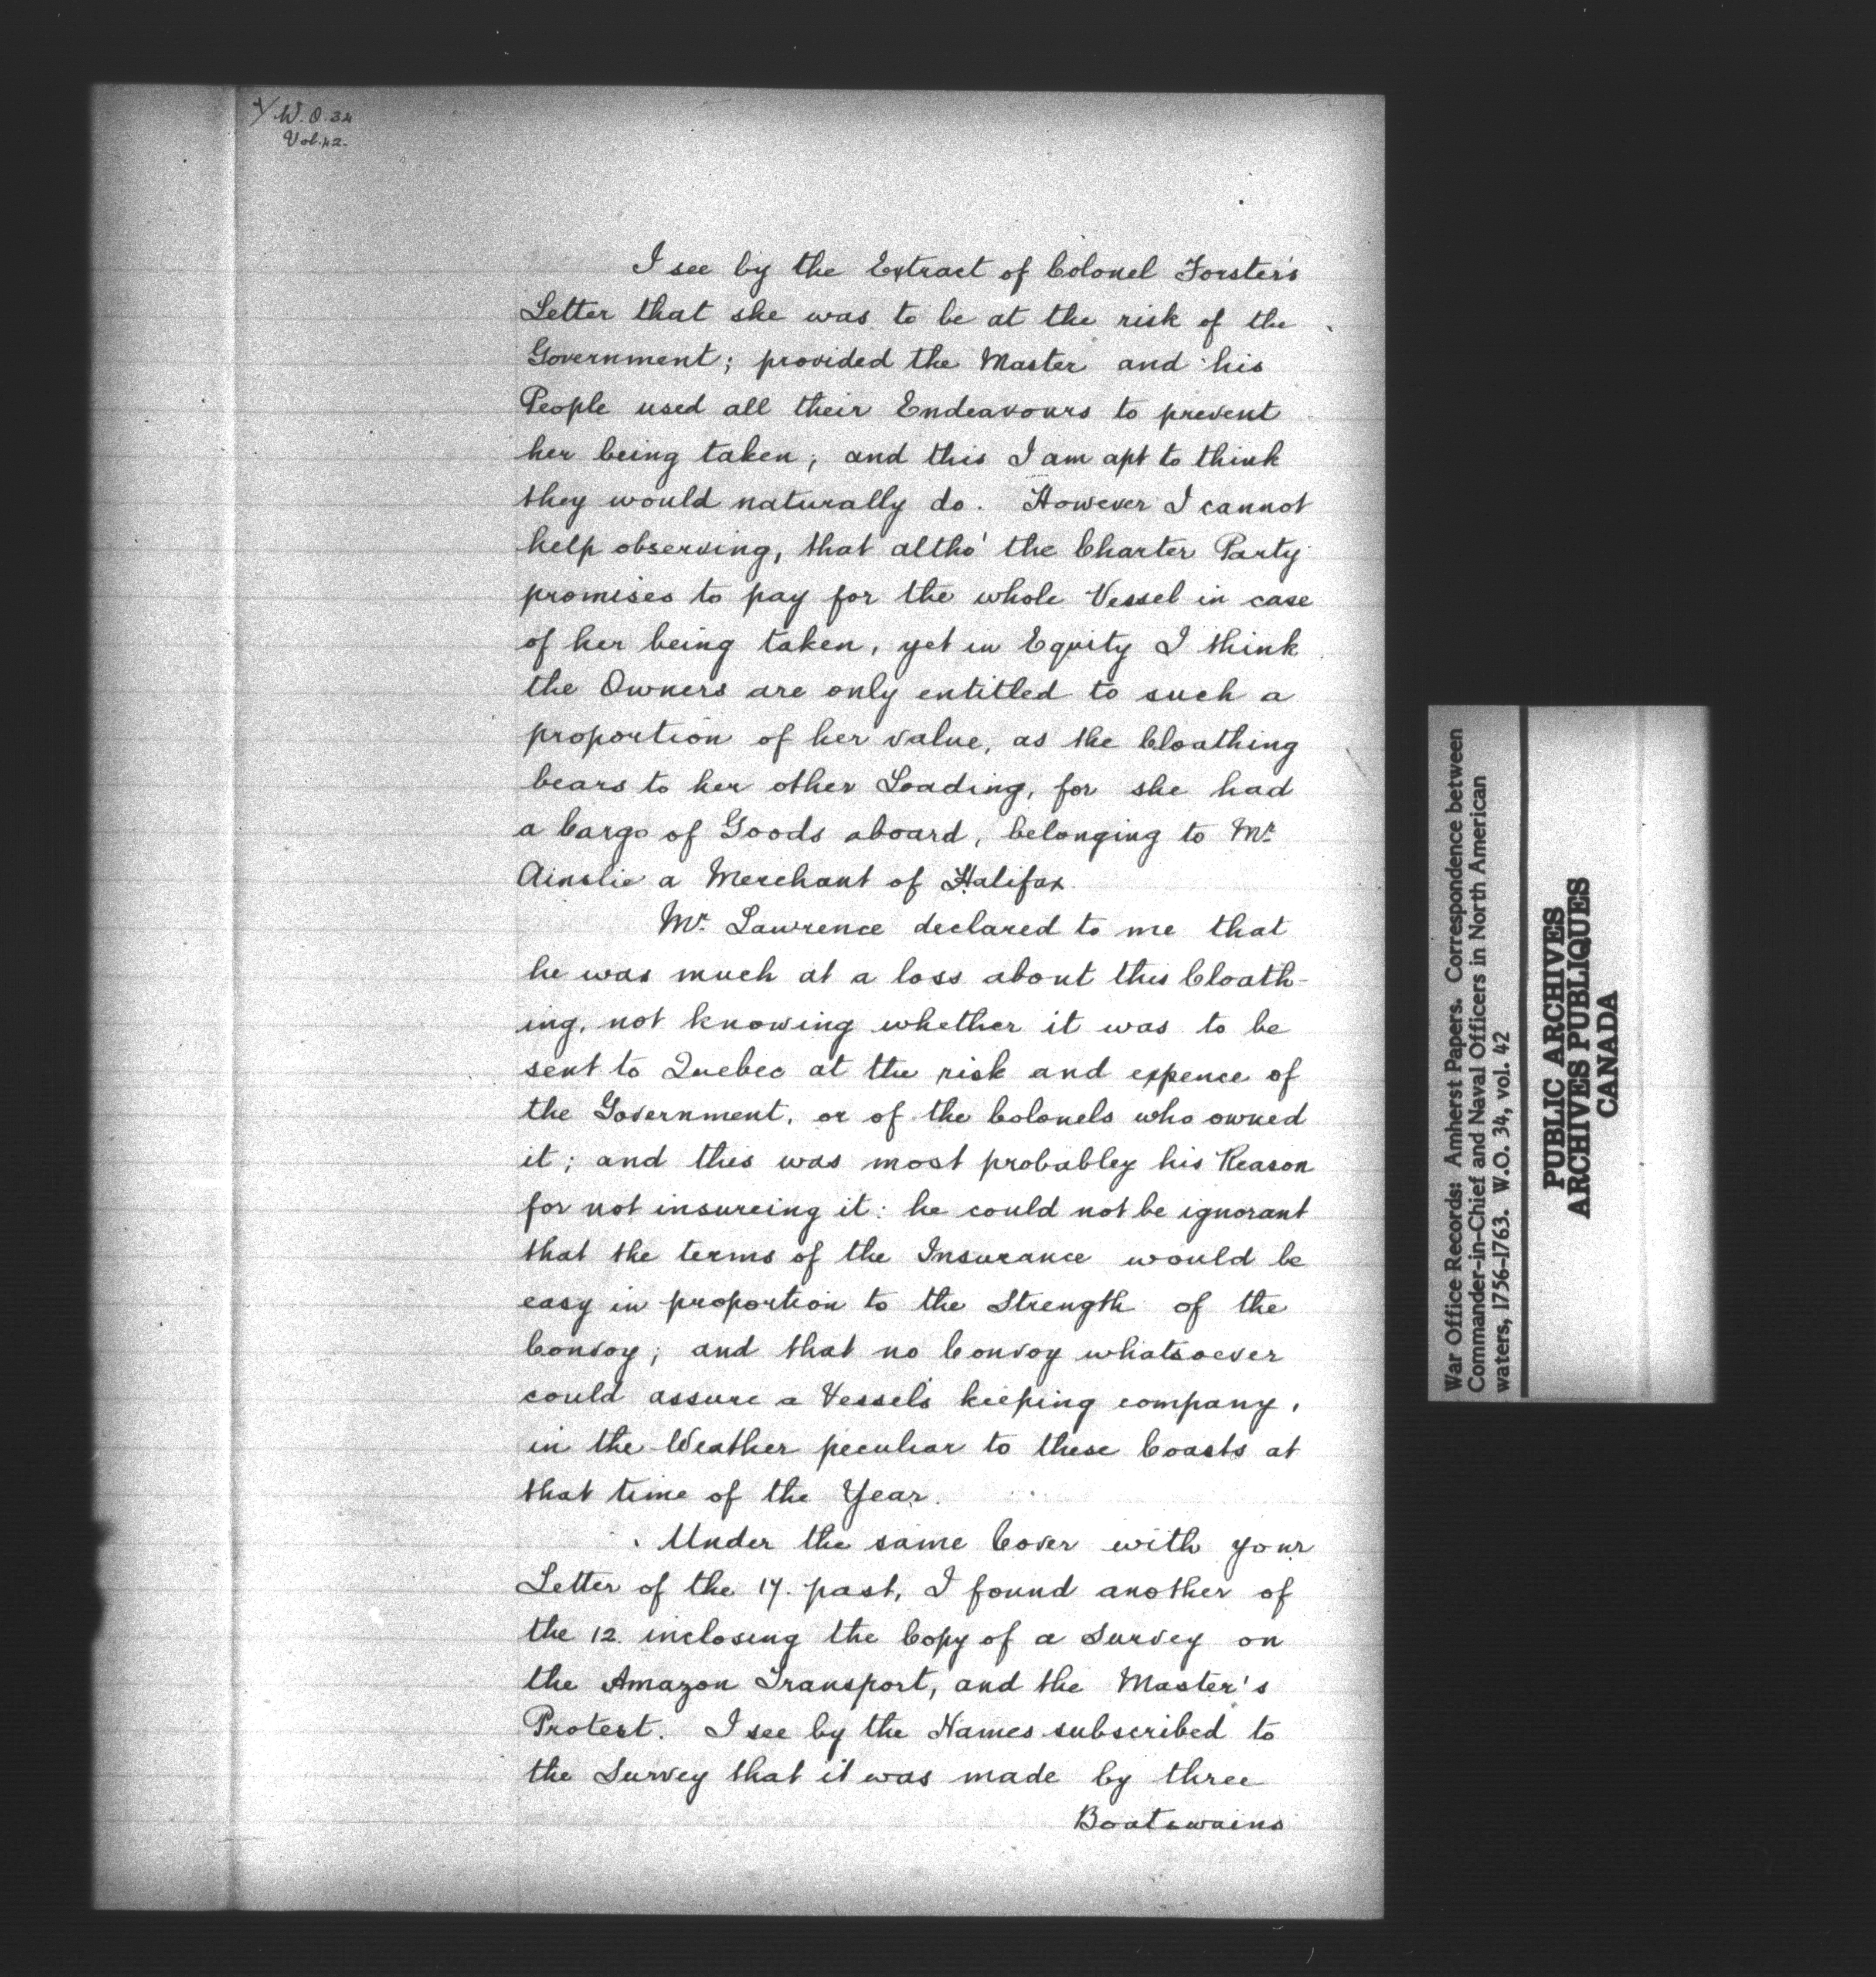 W.O. 34
Vol. 42.
I see by the Extract of Colonel Forster's
Letter that she was to be at the risk of the
Government; provided the Master and his
People used all their Endeavours to prevent
her being taken; and this I am apt to think
they would naturally do. However I cannot
help observing, that altho' the Charter Party
promises to pay for the whole Vessel in case
of her being taken, yet in Equity I think
the Owners are only entitled to such a
proportion of her value, as the Cloathing
bears to her other Loading, for she had
a Cargo of Goods aboard, belonging to Mr.
Ainslie a Merchant of Halifax.
Mr. Lawrence declared to me that
he was much at a loss about this Cloath-
ing, not knowing whether it was to be
sent to Quebec at the risk and expence of
the Government, or of the Colonels who owned
it; and this was most probabley his Reason
for not insureing it: he could not be ignorant
that the terms of the Insurance would be
easy in proportion to the Strength of the
Convoy; and that no Convoy whatsoever
could assure a Vessel's keeping company,
in the Weather peculiar to these Coasts at
that time of the Year.
Under the same Cover with your
Letter of the 17. past, I found another of
the 12. inclosing the Copy of a Survey on
the Amazon Transport, and the Master's
Protest. I see by the Names subscribed to
the Survey that it was made by three
Boatswains
War Office Records: Amherst Papers. Correspondence between
Commander-in-Chief and Naval Officers in North American
waters, 1756-1763. W.O. 34, vol. 42
PUBLIC ARCHIVES
ARCHIVES PUBLIQUES
CANADA